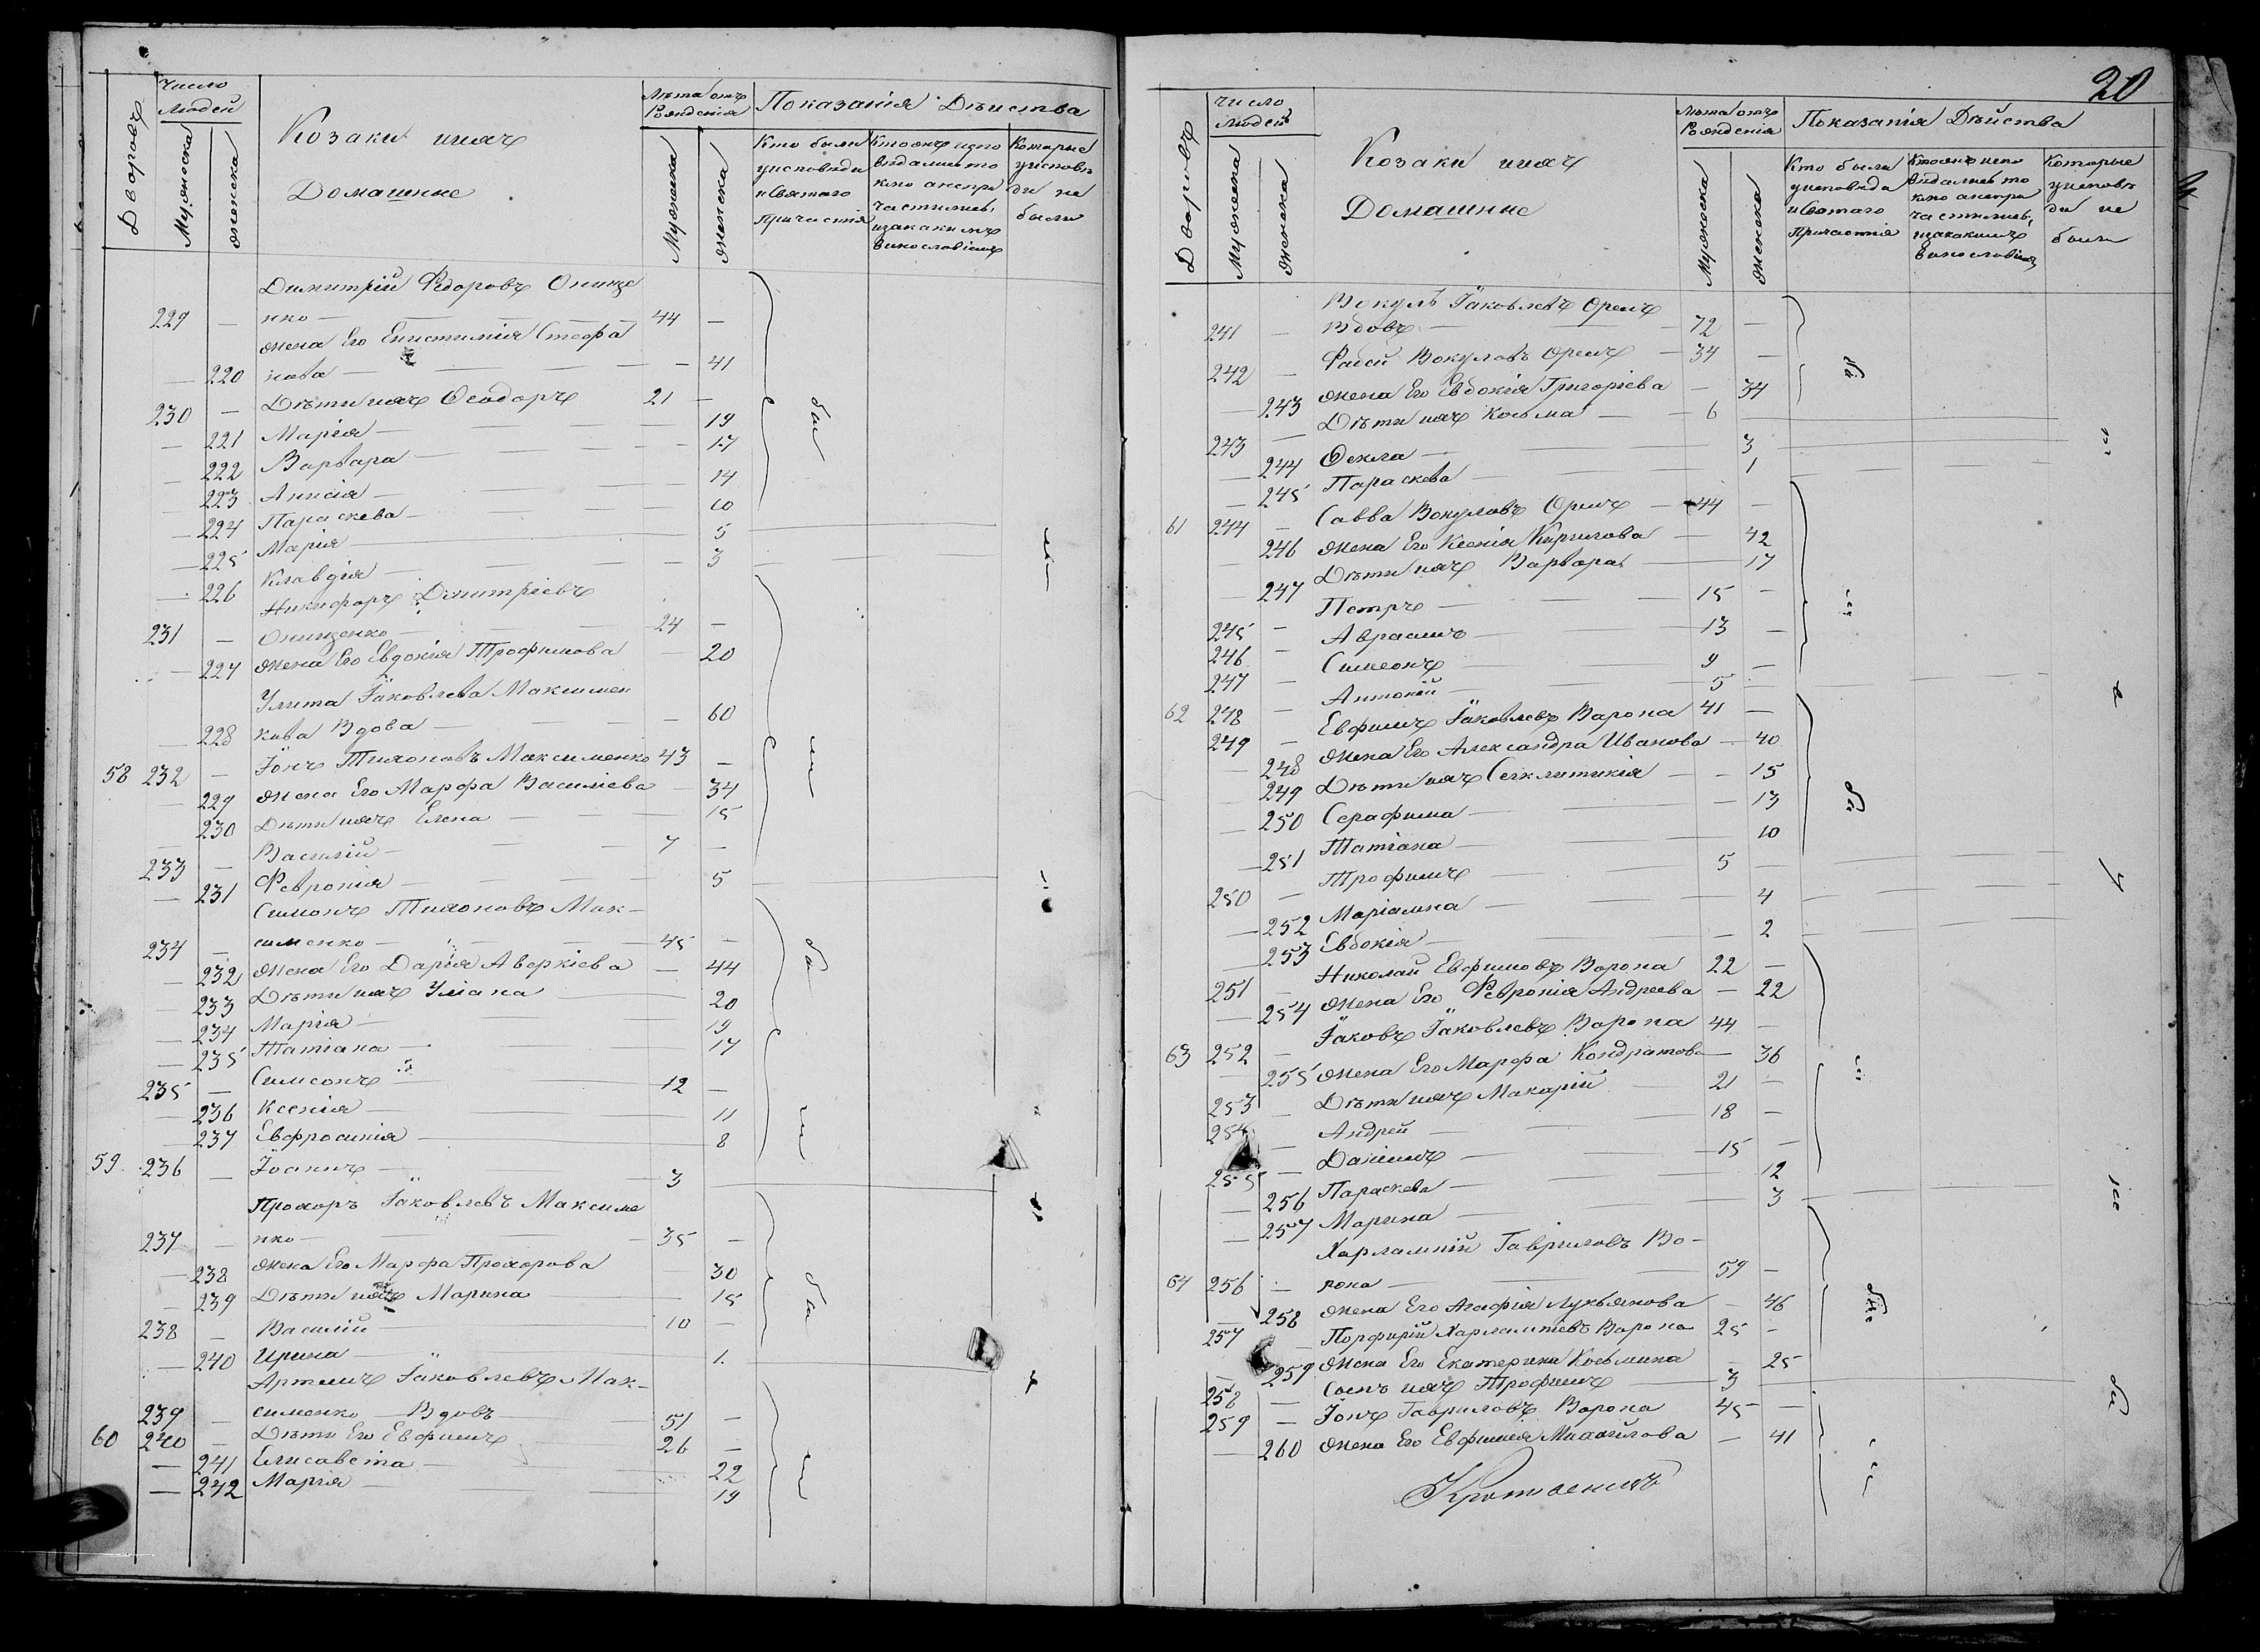 Дворовъ
Число Людей
Мужеска
женска
Козаки ихъ
Домашные
Лѣта отъ Рождения
Мужеска
женска
Показанія Дѣйства
Кто были у исповѣди и Святого Причастія
Кто онъ испо
видались то
кто а непри
частились,
и за какимъ
винословіемъ
Которые у исповѣди не были
Димитрій Ѳедоровъ Онище
229 — нко — 44 —
жена Его Епистимія Стефа
— 220 нова — — 41
230 — Дѣти ихъ Ѳеодоръ 21 —
— 221 Марія — 19
— 222 Варвара — 17
— 223 Анисія — 14
— 224 Параскева — 10
— 225 Марія — 5
— 226 Клавдія — 3
Никифоръ Димитріевъ
231 — Онищенко — 24 —
— 227 жена Его Евдокія Трофимова — 20
Улита Іаковлева Максимен
— 228 кова Вдова — — 60
58 232 — Іонъ Тихоновъ Максименко 43 —
— 229 жена Его Марфа Василіева — 34
— 230 Дѣти ихъ Елена — 15
233 — Василій — 7 —
— 231 Февронія — 5
Симонъ Тихоновъ Мак-
234 — сименко — 45 —
— 232 жена Его Дарія Аверкіева — 44
— 233 Дѣти ихъ Уліана — 20
— 234 Марія — 19
— 235 Татіана — 17
235 — Симеонъ — 12 —
— 236 Ксенія — 11
— 237 Евфросинія — 8
59 236 — Іоаннъ — 3
Прохоръ Іаковлевъ Максиме
237 — нко — 35 —
— 238 жена Его Марфа Прохорова 30
— 239 Дѣти ихъ Марина — 15
238 — Василій — 10 —
— 240 Ирина — 1.
Артемъ Іаковлевъ Мак-
239 — сименко — Вдовъ 51 —
60 240 — Дѣти Его Евфимъ 26 —
— 241 Елисавета — 22
— 242 Марія — 19
20
Дворовъ
Число Людей
Мужеска
женска
Козаки ихъ
Домашные
Лѣта отъ Рождения
Мужеска
женска
Показанія Дѣйства
Кто были у исповѣди и Святаго Причастія
Кто онъ испо
видались то
кто а непри
частились,
и за какимъ
винословіемъ
Которые у исповѣди не были
Вокулъ Іаковлевъ Орелъ
241 — Вдовъ — 72 —
242 — Фадей Вокуловъ Орелъ — 34 —
— 243 жена Его Евдокія Григоріева — 34
243 — Дѣти ихъ Косьма — 6
— 244 Ѳекла — 3
— 245 Параскева — 1
61 244 — Савва Вокуловъ Орелъ — 44 —
— 246 жена Его Ксенія Кирилова — 42
— 247 Дѣти ихъ Варвара — 17
245 — Петръ — 15 —
246 — Авраамъ — 13 —
247 — Симеонъ — 9 —
62 248 — Антоній — 5 —
249 — Евфимъ Іаковлевъ Ворона 41 —
— 248 жена Его Александра Иванова — 40
— 249 Дѣти ихъ Сегклитикія — 15
— 250 Серафима — 13
— 251 Татіана — 10
250 — Трофимъ — 5 —
— 252 Маріамна — 4
— 253 Евдокія — 2
251 — Николай Евфимовъ Ворона 22 —
— 254 жена Его Февронія Андреева — 22
63 252 — Іаковъ Іаковлевъ Ворона 44 —
— 255 жена Его Марфа Кондратова — 36
253 — Дѣти ихъ Макарій 21 —
254 — Андрей — 18 —
255 — Даніилъ — 15 —
— 256 Параскева — 12
— 257 Марина — 3
Харлампій Гавриловъ Во-
64 256 — рона — 59 —
— 258 жена Его Агафія Лукьянова — 46
257 — Порфирій Харлампіевъ Ворона 25 —
— 259 жена Его Екатерина Косьмина — 25
258 — Сынъ ихъ Трофимъ — 3
259 — Іонъ Гавриловъ Ворона 45 —
— 260 жена Его Евфимія Михайлова — 41